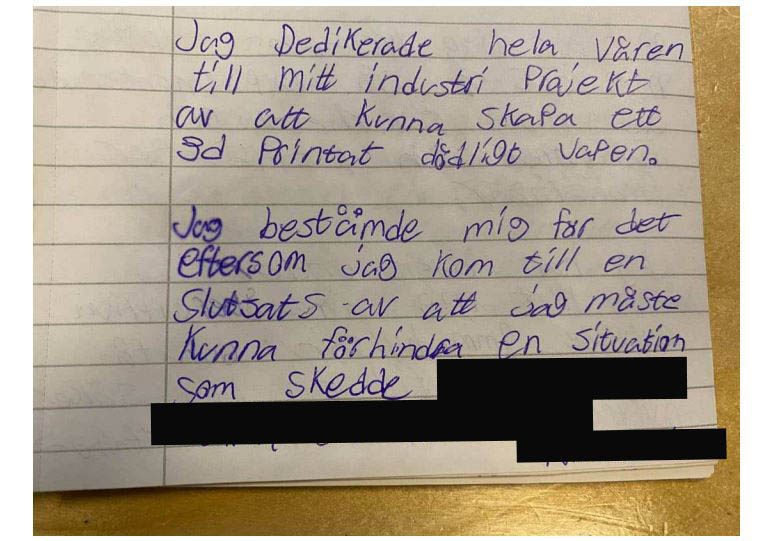 Jag Dedikerade hela våren
till mitt industri Projekt
av att kunna skapa ett
3d Printat dödligt vapen.
Jag bestämde mig för det
eftersom jag kom till en
slutsats av att jag måste
kunna förhindra en situation
som skedde